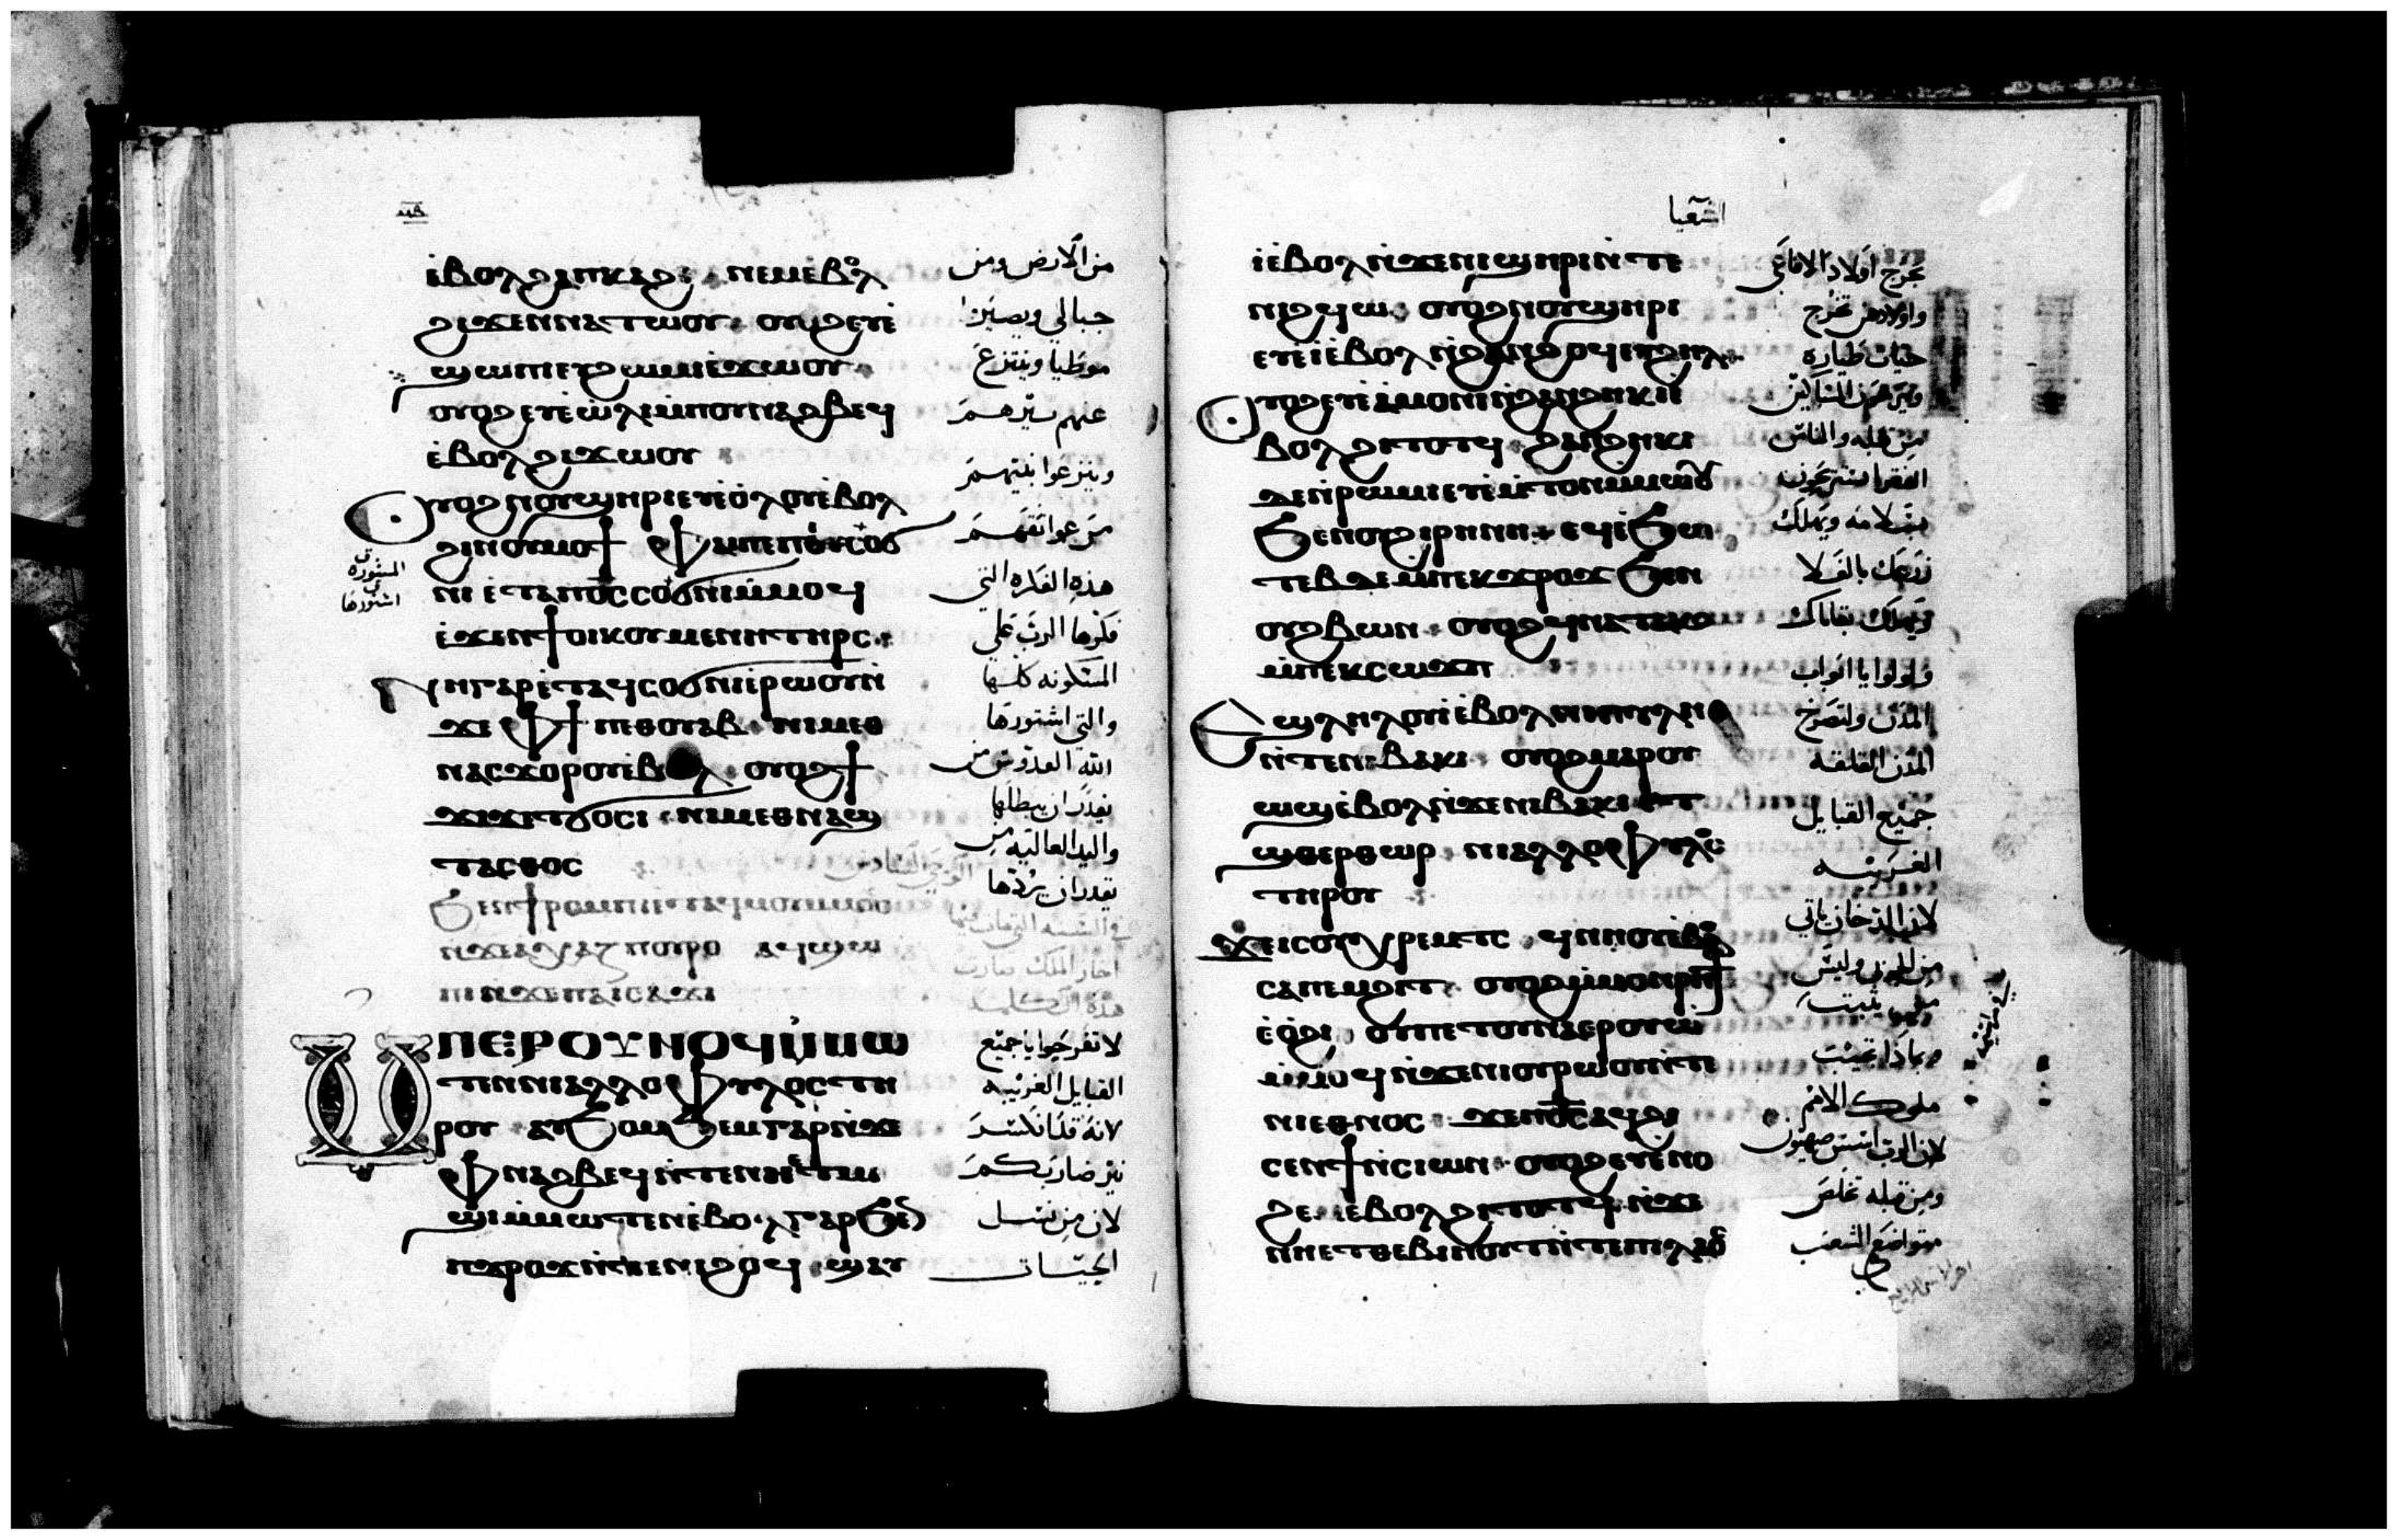 ⲙⲃ
ⲉⲃⲟⲗϩⲁⲡⲕⲁϩⲓ ⲛⲉⲙⲉⲃⲟⲗ
ϩⲓϫⲉⲛⲛⲁⲧⲱⲟⲩ ⲟⲩⲟϩⲉⲩⲉ
ϣⲱⲡⲓⲉⲩϩⲱⲙⲓⲉϫⲱⲟⲩ
ⲟⲩⲟϩⲉⲩⲉⲱⲗⲓⲙⲡⲟⲩⲛⲁϩⲃⲉϥ
ⲉⲃⲟⲗϩⲓϫⲱⲟⲩ
ⲟⲩⲟϩⲛⲟⲩϣⲏⲣⲓⲉⲩⲉⲟⲗⲟⲩⲉⲃⲟⲗ
ⲛⲓ ⲉⲧⲁⲡⲟ̅ⲥ̅ⲥⲟϭⲛⲓⲙⲙⲟϥ
ⲉϫⲉⲛϯⲟⲓⲕⲟⲩⲙⲉⲛⲏⲧⲏⲣⲥ
ⲛⲏⲅⲁⲣⲉⲧⲁϥⲥⲟϭⲛⲓⲉⲣⲱⲟⲩⲛ
ϫⲉⲫϯⲡⲉⲑⲟⲩⲁⲃ ⲛⲓⲙⲉⲑ
ⲛⲁⲥϫⲟⲣⲟⲩⲉⲃⲟⲗ ⲟⲩⲟϩϯ
ϫⲓϫⲉⲧϭⲟⲥⲓ ⲛⲓⲙⲉⲑⲛⲁϣ
ⲧⲁⲥⲑⲟⲥ
ϧⲉⲛϯⲣⲟⲙⲡⲓⲉⲧⲁϥⲙⲟⲩⲙⲙⲟⲥ
ⲛϫⲉⲁⲭⲁⲍ ⲡⲟⲩⲣⲟ ⲁϥϣⲱ
ⲡⲓⲛϫⲉⲡⲁⲓⲥⲁϫⲓ
ⲙⲡⲉⲣⲟⲩⲛⲟϥⲙⲙⲱ
ⲧⲉⲛⲛⲓⲁⲗⲗⲟⲫⲩⲗⲟⲥⲧⲏ
ⲣⲟⲩ ⲁϥϧⲟⲙϧⲉⲙⲅⲁⲣⲛϫⲉ
ⲫⲛⲁϩⲃⲉϥⲛⲧⲉⲛⲏⲉⲧⲙ
ϣⲓⲙⲙⲱⲧⲉⲛⲉⲃⲟⲗⲅⲁⲣϧⲉⲛ
ⲡϫⲣⲟϫⲛⲧⲉⲛⲓϩⲟϥ ⲉϣⲁⲩ
من الارض ومن
جبالي ويصيروا
موطيا وينتزع
عنهم نيرهم
هذه الفكره التي
فكرها الرب علي
المسكونه كلها
والتي اشتورها
الله القدوس من
يقدر ان يبطلها
واليد العاليه من
يقدر ان يردها
المشوره
التي
اشتورها
في السنه التي مات فيها
احاز الملك صارت
هذه الكلمه
لا تفرحوا يا جميع
القبايل الغريبه
لانه قد انكسر
نير ضاربكم
لان من نسل
الحيات
اشعيا
ⲓⲉⲃⲟⲗⲛϫⲉⲛⲓϣⲏⲣⲓⲛⲧⲉ
ⲛⲓϩϥⲱ ⲟⲩⲟϩⲛⲟⲩϣⲏⲣⲓ
ⲉⲩⲉⲓⲉⲃⲟⲗⲛϩⲁⲛϩⲟϥⲉⲩϩⲏⲗ
ⲟⲩⲟϩⲉⲩⲉⲁⲙⲟⲛⲓⲛϩⲁⲛϩⲏⲕⲓⲉ
ⲃⲟⲗϩⲓⲧⲟⲧϥ ϩⲁⲛϩⲏⲕⲓ
ⲇⲉⲛⲣⲱⲙⲓⲉⲩⲉⲙⲧⲟⲛⲙⲙⲱⲟⲩ
ϧⲉⲛⲟⲩϩⲓⲣⲏⲛⲏ ⲉϥⲉϧⲉⲛ
ⲧⲉⲃⲇⲉⲙⲡⲉⲕϫⲣⲟϫ ϧⲉⲛ
ⲟⲩϩⲃⲱⲛ ⲟⲩⲟϩϥⲛⲁⲧⲁⲕⲟ
ⲙⲡⲉⲕⲥⲱϫⲡ
ⲉϣⲗⲏⲗⲟⲩⲓⲉⲃⲟⲗⲛⲓⲡⲩⲗⲏ
ⲛⲧⲉⲛⲓⲃⲁⲕⲓ ⲟⲩⲟϩⲙⲁⲣⲟⲩ
ⲱϣⲉⲃⲟⲗⲛϫⲉⲛⲓⲃⲁⲕⲓⲉⲧ
ϣⲑⲉⲣⲑⲱⲣ ⲛⲓⲁⲗⲗⲟⲫⲩⲗⲟⲥ
ⲧⲏⲣⲟⲩ
ϫⲉⲓⲥⲟⲩⲭⲣⲉⲙⲧⲥ ϥⲛⲏⲟⲩⲉⲃⲟⲗ
ⲥⲁⲡⲉⲙϩⲓⲧ ⲟⲩⲟϩⲙⲙⲟⲛⲣⲏϯ
ⲉⲟϩⲓ ⲟⲩⲡⲉⲧⲟⲩⲛⲁⲉⲣⲟⲩⲱ
ⲙⲙⲟϥⲛϫⲉⲛⲓⲟⲩⲣⲱⲟⲩⲛⲧⲉ
ⲛⲓⲉⲑⲛⲟⲥ ϫⲉⲡⲟ̅ⲥ̅ⲁϥϩⲓ
ⲥⲉⲛϯⲛⲥⲓⲱⲛ ⲟⲩⲟϩⲉⲩⲉⲛⲟ
ϩⲉⲙⲉⲃⲟⲗϩⲓⲧⲟⲧϥⲛϫⲉ
ⲛⲏⲉⲧⲑⲉⲃⲓⲏⲟⲩⲧⲛⲧⲉⲡⲓⲗⲁⲟⲥ
تخرج اولاد الافاعي
واولادهن تخرج
حيات طياره
من قبله والناس
الفقرا يستريحون
بسلامه ويهلك
زرعك بالغلا
ويهلك بقاياك
ولولوا يا ابواب
المدن ولتصرخ
المدن القلقه
جميع القبايل
الغريبه
لان الدخان ياتي
وبماذا تجيب
ملوك الامم
لان الرب اسس صهيون
ومن قبله تخلص
متواضعي الشعب